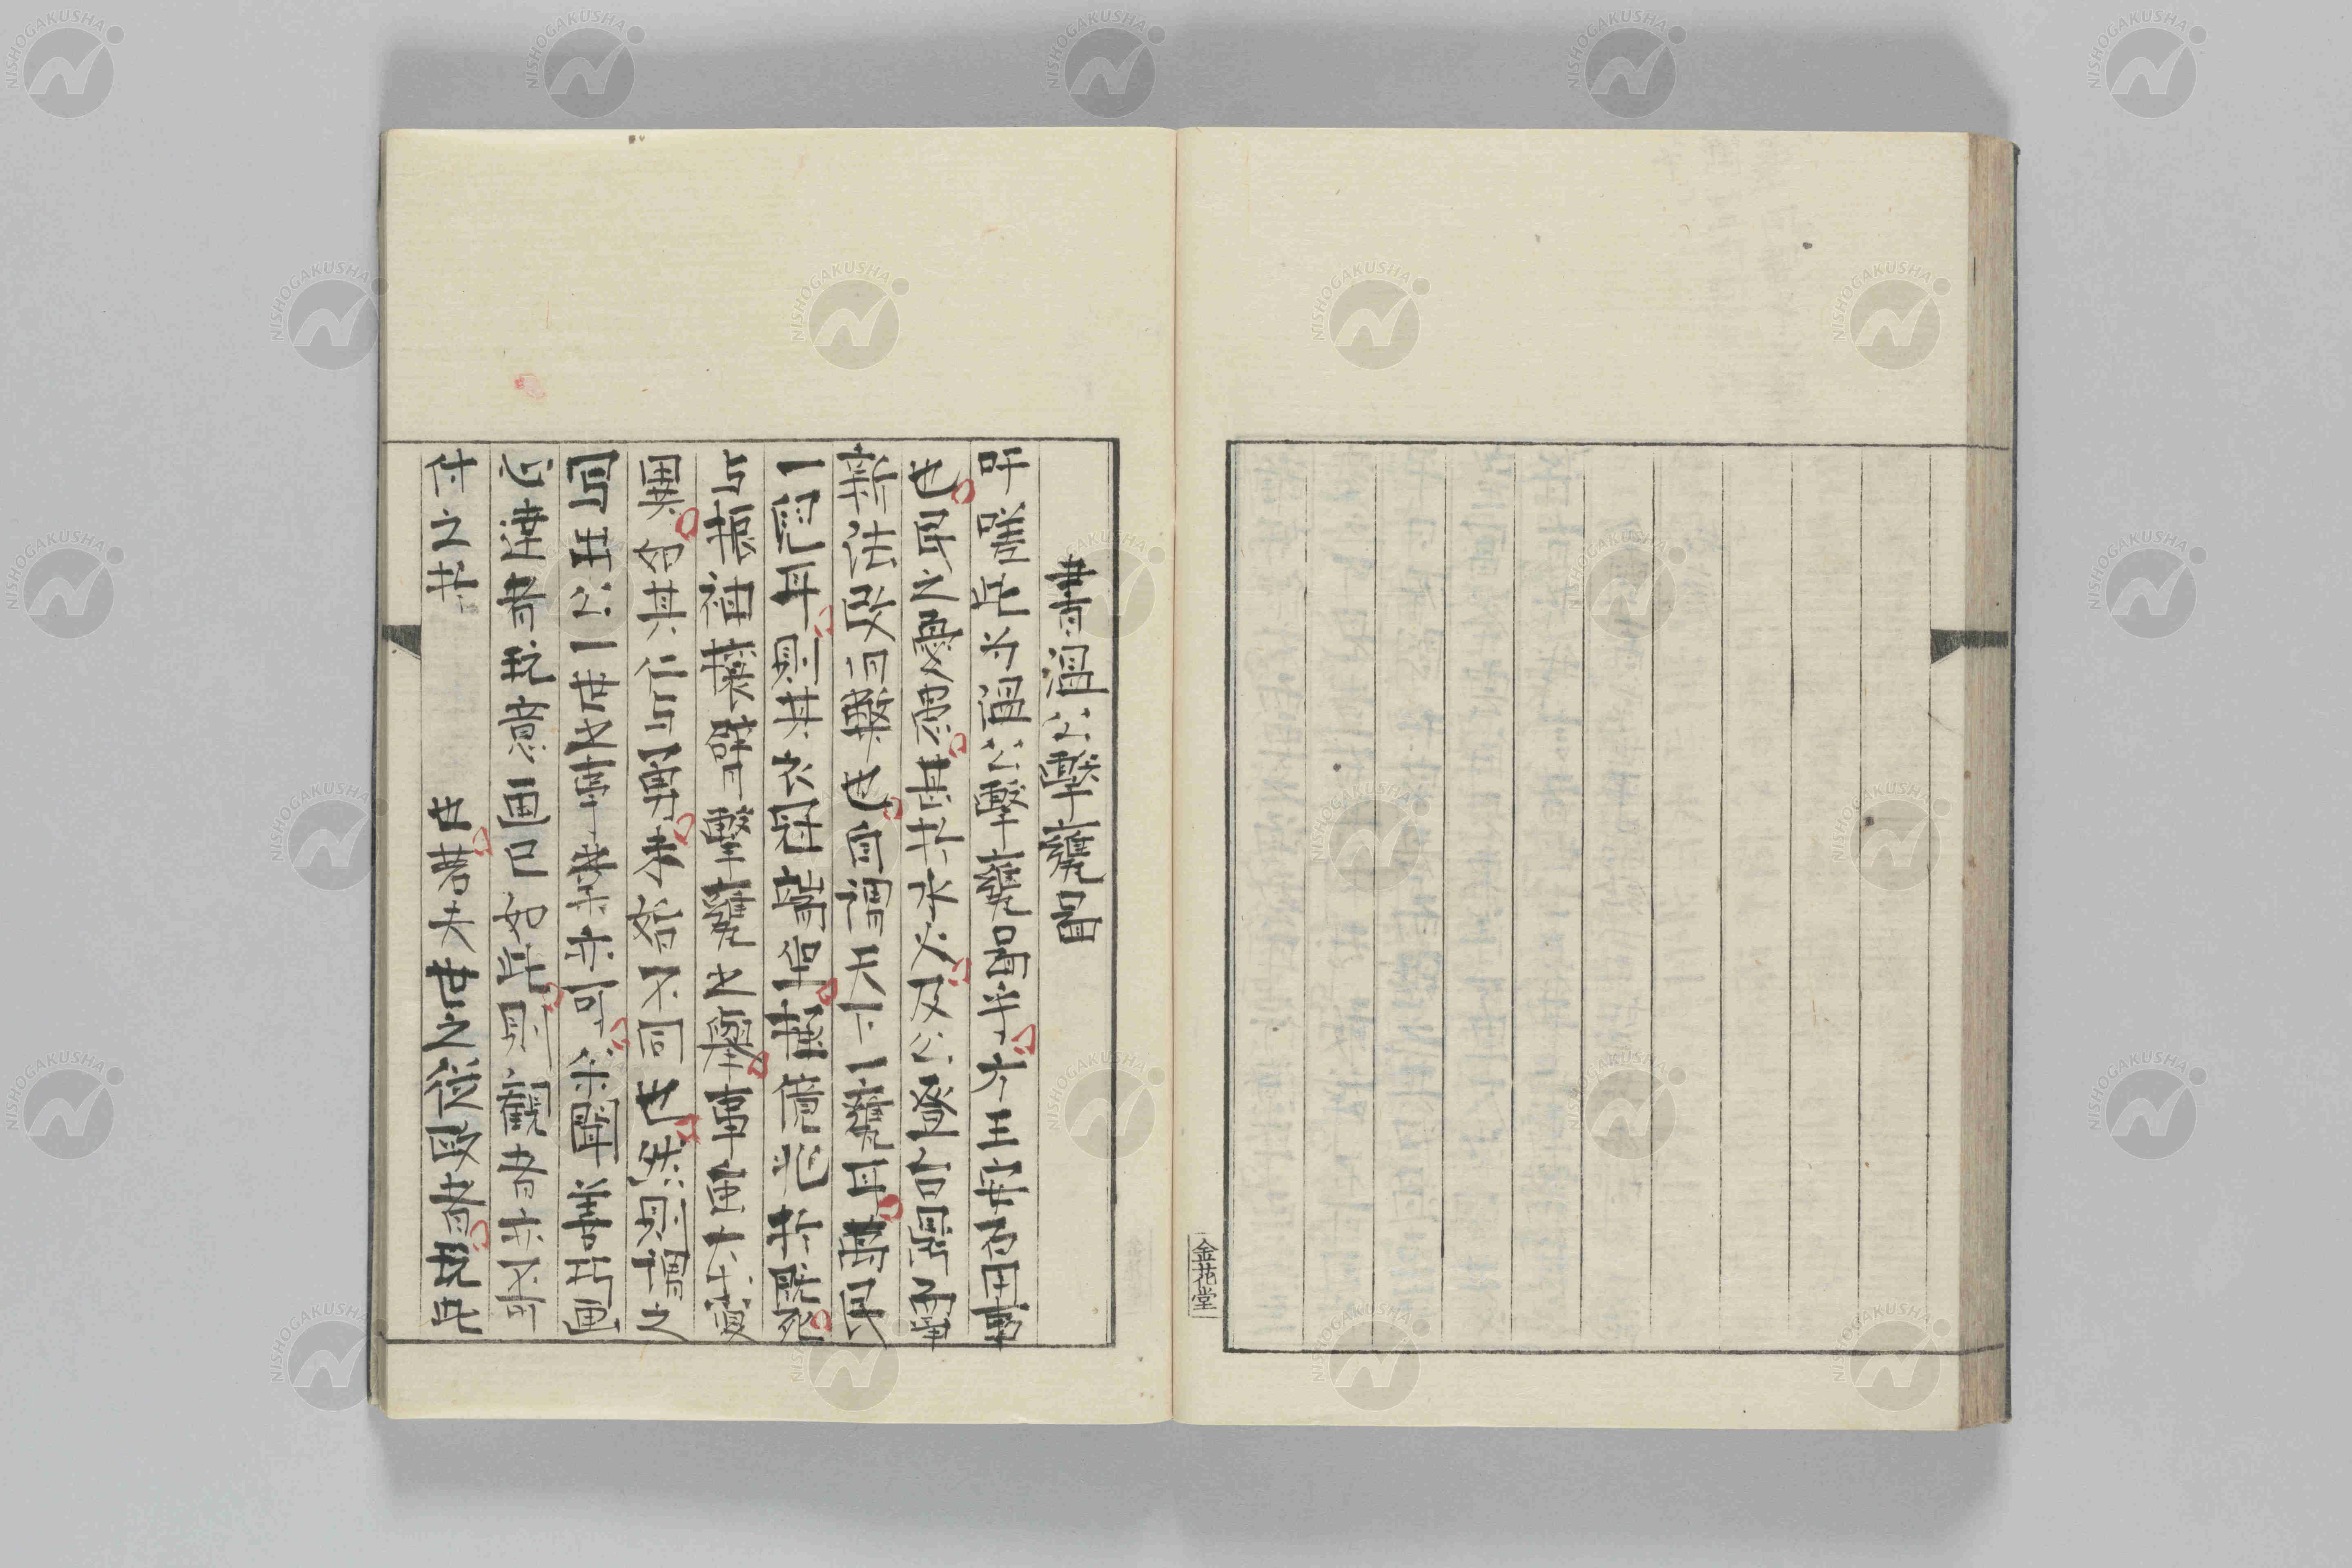 金花堂
書溫公擊甕圖
吁嗟此為溫公擊甕圖乎方王安石用事
也民之憂慮甚於水火及公登台鼎予奪
新法改何藥也自謂天下一甕耳萬民
一兒耳則其衣冠端坐措億兆於既死
與振袖攘臂擊甕之舉事重大小復
異而其仁與勇未始不同也然則謂之
與公一世之事業亦可余聞善巧画
心津者既意画已如此則觀者亦不可
付之於 也若夫世之從毀者既此
NISHOGAKUSHA